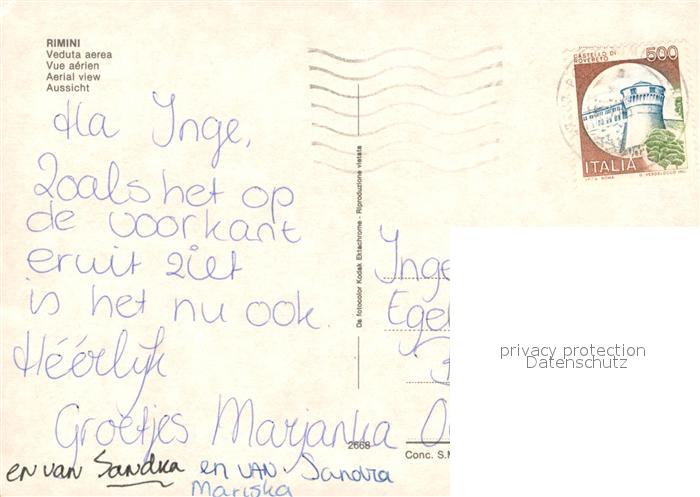 RIMINI
Veduta aerea
Vue aérien
Aerial view
Aussicht
CASTELLO DI
ROVERETO
500
ITALIA
Ha Inge,
Zoals het op
de voorkant
eruit ziet
is het nu ook.
Héérlijk
Groetjes Marjanka
en van Sandra en van Sandra
Mariska
Da fotocolor Kodak Ektachrome - Riproduzione vietata
2668
Inge
Conc. S.M
privacy protection
Datenschutz